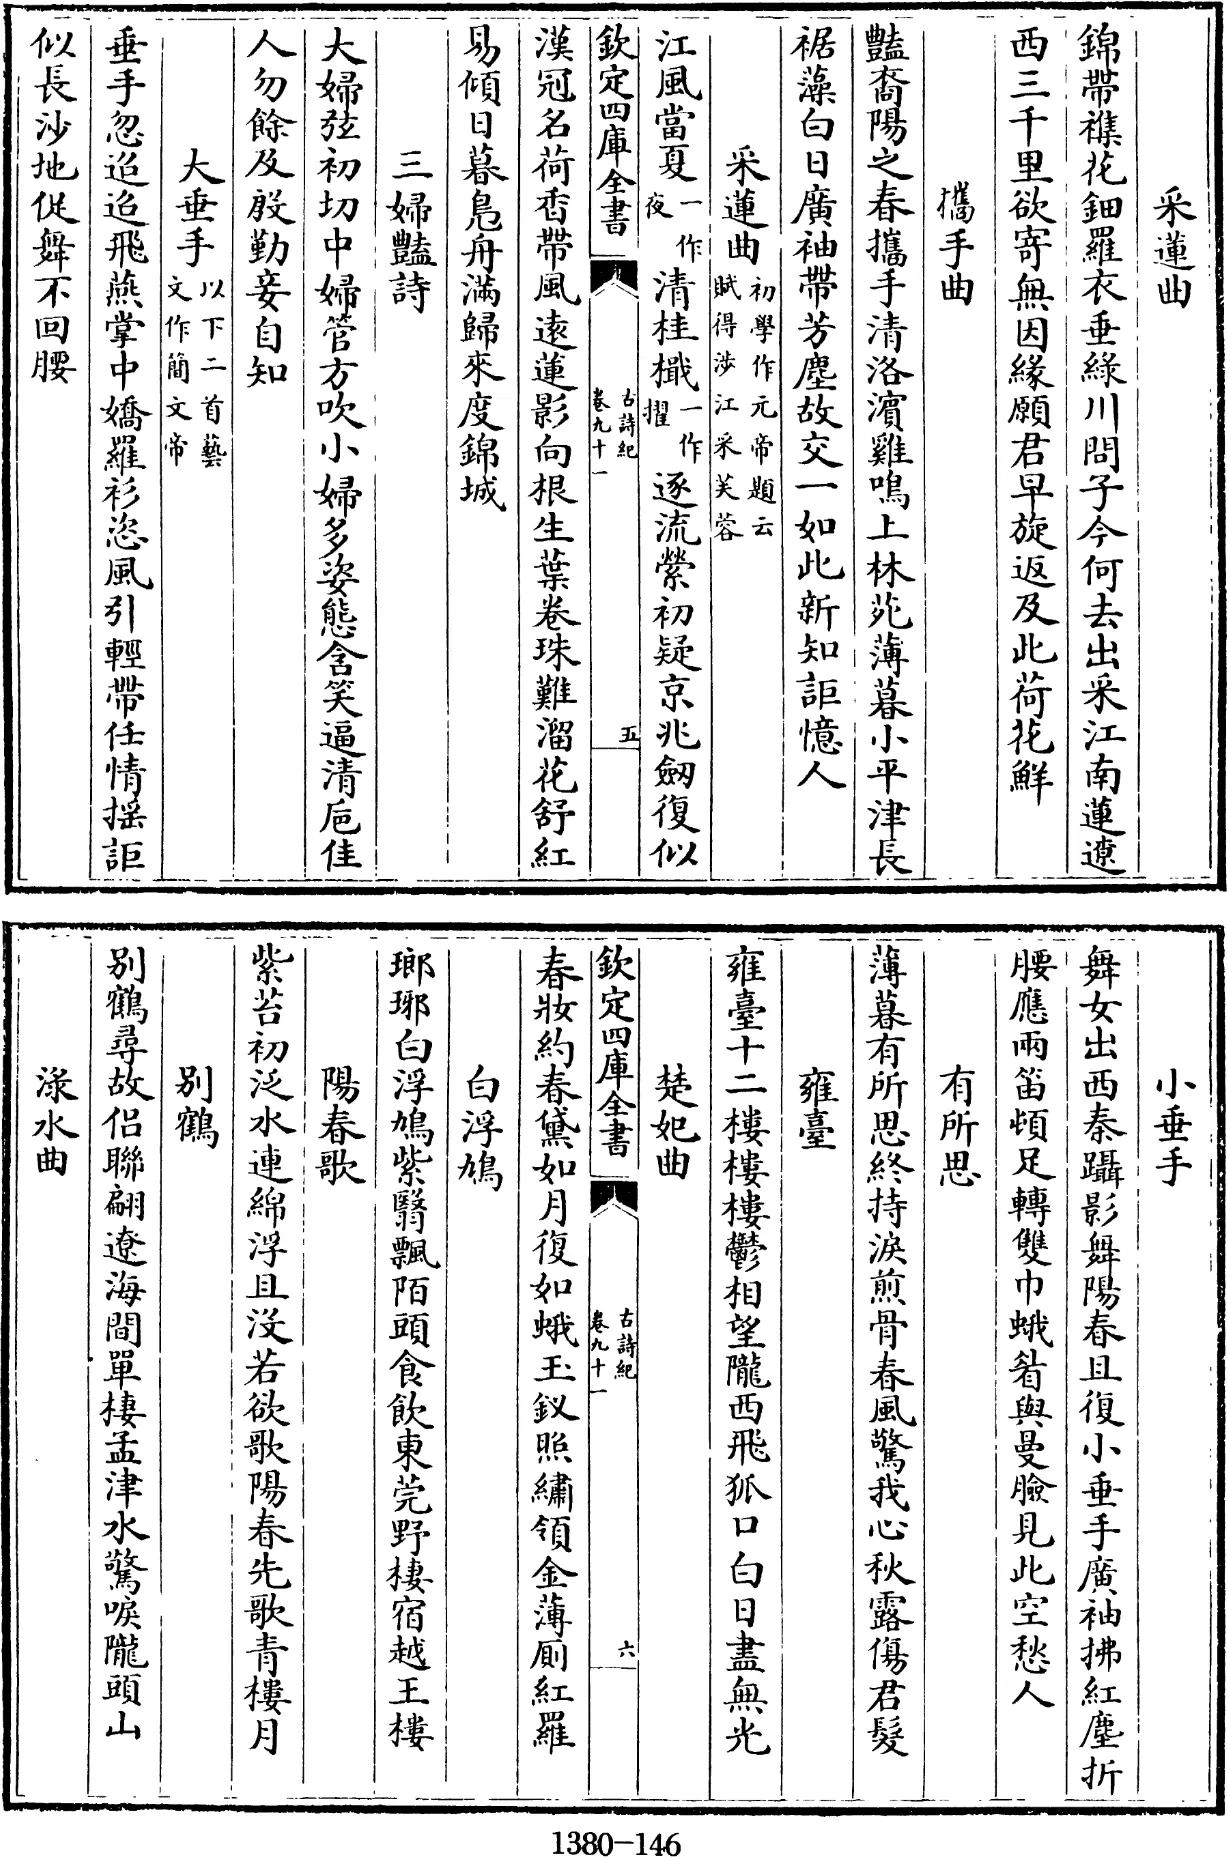 采蓮曲
錦帶襍花鈿羅衣垂綠川問子今何去出采江南蓮遼
西三千里欲寄無因緣願君早旋返及此荷花鮮
攜手曲
豔裔陽之春攜手清洛濱雞鳴上林苑薄暮小平津長
裾藻白日廣袖帶芳塵故交一如此新知詎憶人
采蓮曲初學作元帝題云賦得涉江采芙蓉
江風當夏一作夜清桂檝一作擢逐流縈初疑京兆劒復似
欽定四庫全書 古詩紀卷九十一 五
漢冠名荷香帶風遠蓮影向根生葉卷珠難溜花舒紅
易傾日暮鳧舟滿歸來度錦城
三婦豔詩
大婦弦初切中婦管方吹小婦多姿態含笑逼清卮佳
人勿餘及殷勤妾自知
大垂手以下二首藝文作簡文帝
垂手忽迢迢飛燕掌中嬌羅衫恣風引輕帶任情揺詎
似長沙地促舞不回腰
小垂手
舞女出西秦躡影舞陽春且復小垂手廣袖拂紅塵折
腰應兩笛頓足轉雙巾蛾眉與曼臉見此空愁人
有所思
薄暮有所思終持淚煎骨春風驚我心秋露傷君髮
雍臺
雍臺十二樓樓樓鬱相望隴西飛狐口白日盡無光
楚妃曲
欽定四庫全書 古詩紀卷九十一 六
春妝約春黛如月復如蛾玉釵照繡領金薄厠紅羅
白浮鳩
瑯琊白浮鳩紫翳飄陌頭食飲東莞野棲宿越王樓
陽春歌
紫苔初泛水連綿浮且沒若欲歌陽春先歌青樓月
別鶴
別鶴尋故侶聯翩遼海間單棲孟津水驚唳隴頭山
淥水曲
1380-146